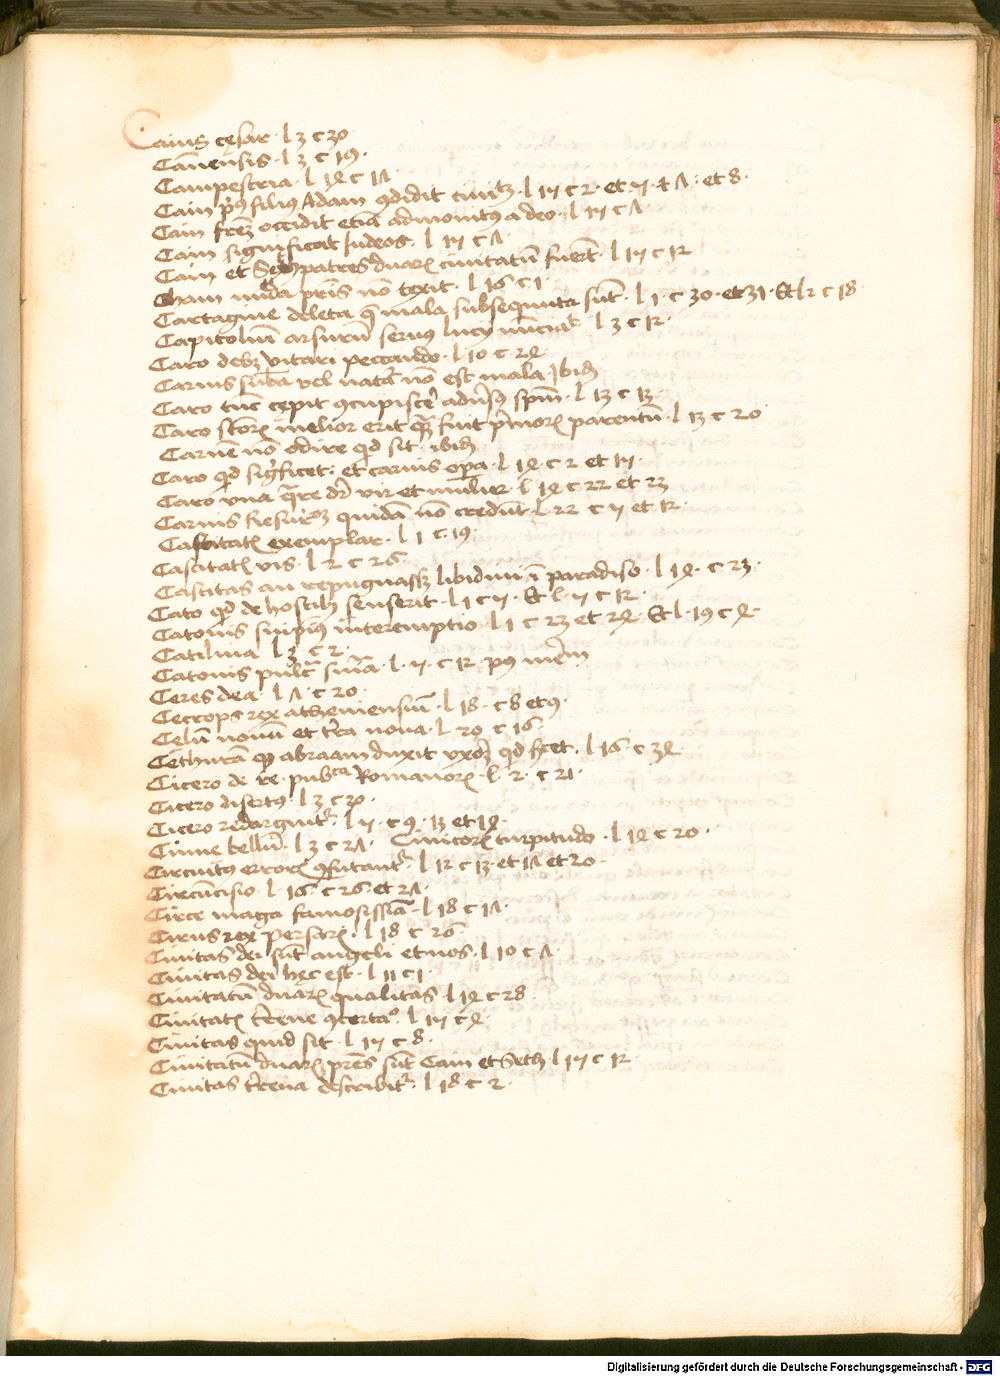 Caius cęsar · l 3 c 30
Cānensis · l 3 c 19 ·
Campestria · l 14 c 17
Cain pͥmꝰ filiꝰ Adam ꝯdidit ciuitꝫ · l 15 c 2 · et 5 · et 7 · et 8 ·
Cain fr̄eꝫ occidit etiā admonitꝰ a deo · l 15 c 7
Cain significat Iudeos · l 15 c 7
Cain et Seth patres duarꝝ ciuitatū fuer̄t · l 15 c 12
Cham nuda pr̄is nō texit · l 16 c 1
Cartagine deleta q̄ mala subsequuta sūt · l 1 · c 30 · et 31 · Et l 2 c 18
Capitoliū arsurū seruus lucij nūciat · l 3 c 12 ·
Caro debꝫ vitari peccando · l 10 c 24
Carnis sub̄a vel natā nō est mala · Ibid
Caro tūc cępit ꝯcupiscer̄ aduersꝰ spm̄ · l 13 c 13
Caro sctōrꝝ melior erit qͣꝫ fuit pͥmorꝝ parentū · l 13 c 20
Carnē nō odire qd sit · ibid
Caro qd sigficet : et carnis opa · l 14 c 2 et 15 ·
Caro vna qͣre dr̄ vir et mulier · l 14 c 22 et 23
Carnis resur̄oꝫ quidā nō credūt · l 22 c 5 et 12 ·
Castitatꝭ exemplar · l 1 c 19
Castitatꝭ vis · l 2 c 26 ·
Castitas an repugnassꝫ libidini ī paradiso · l 14 · c 23 ·
Cato qd de hostibꝫ senserit · l 1 c 5 · Et l · 5 c 12 ·
Catonis suipiꝰ interemptio l 1 c 23 et 24 Et l · 19 c 4 ·
Catilina l 3 c 2 ·
Catonis pulcͣ sn̄ia · l · 5 · c 12 · pꝰ mēm
Ceres dea l 7 · c 20 ·
Cecrops rex atheniensiū · l 18 · c 8 et 9 ·
Cęlū nouū et t̄ra noua · l 20 c 16 ·
Cethurā qꝫ abraam duxit vxorē qd hꝫet · l 16 c 34
Cicero de re · pubᶜᵃ Romanorꝝ · l · 2 · c 21 ·
Cicero disertꝰ · l 3 c 30 ·
Cicero redarguitꝭ · l 5 · c 9 · 13 et 14 ·
Cinne bellū · l 3 c 27 · Cinicorꝝ turpitudo · l 14 c 20 ·
Circuitꝰ errorꝝ ꝯfutantꝭ · l 12 c 13 · et 17 et 20 ·
Circūcisio l · 16 · c 26 et 27 ·
Circe maga famosissīa · l 18 c 17 ·
Cirus rex persarꝝ · l 18 c 26
Ciuitas dei sūt angeli et nos · l 10 c 7
Ciuitas dei hęc est · l 11 c 1 ·
Ciuitatū duarꝝ qualitas · l 14 c 28
Ciuitatꝭ t̄rene ꝯcertaᵒ · l 15 c 4
Ciuitas quid sit · l 15 c 8 ·
Ciuitatū duarꝝ pr̄es sūt Cain et Seth · l 15 c 12 ·
Ciuitas t̄rena describitꝭ · l 18 c 2 ·
Digitalisierung gefördert durch die Deutsche Forschungsgemeinschaft - DFG